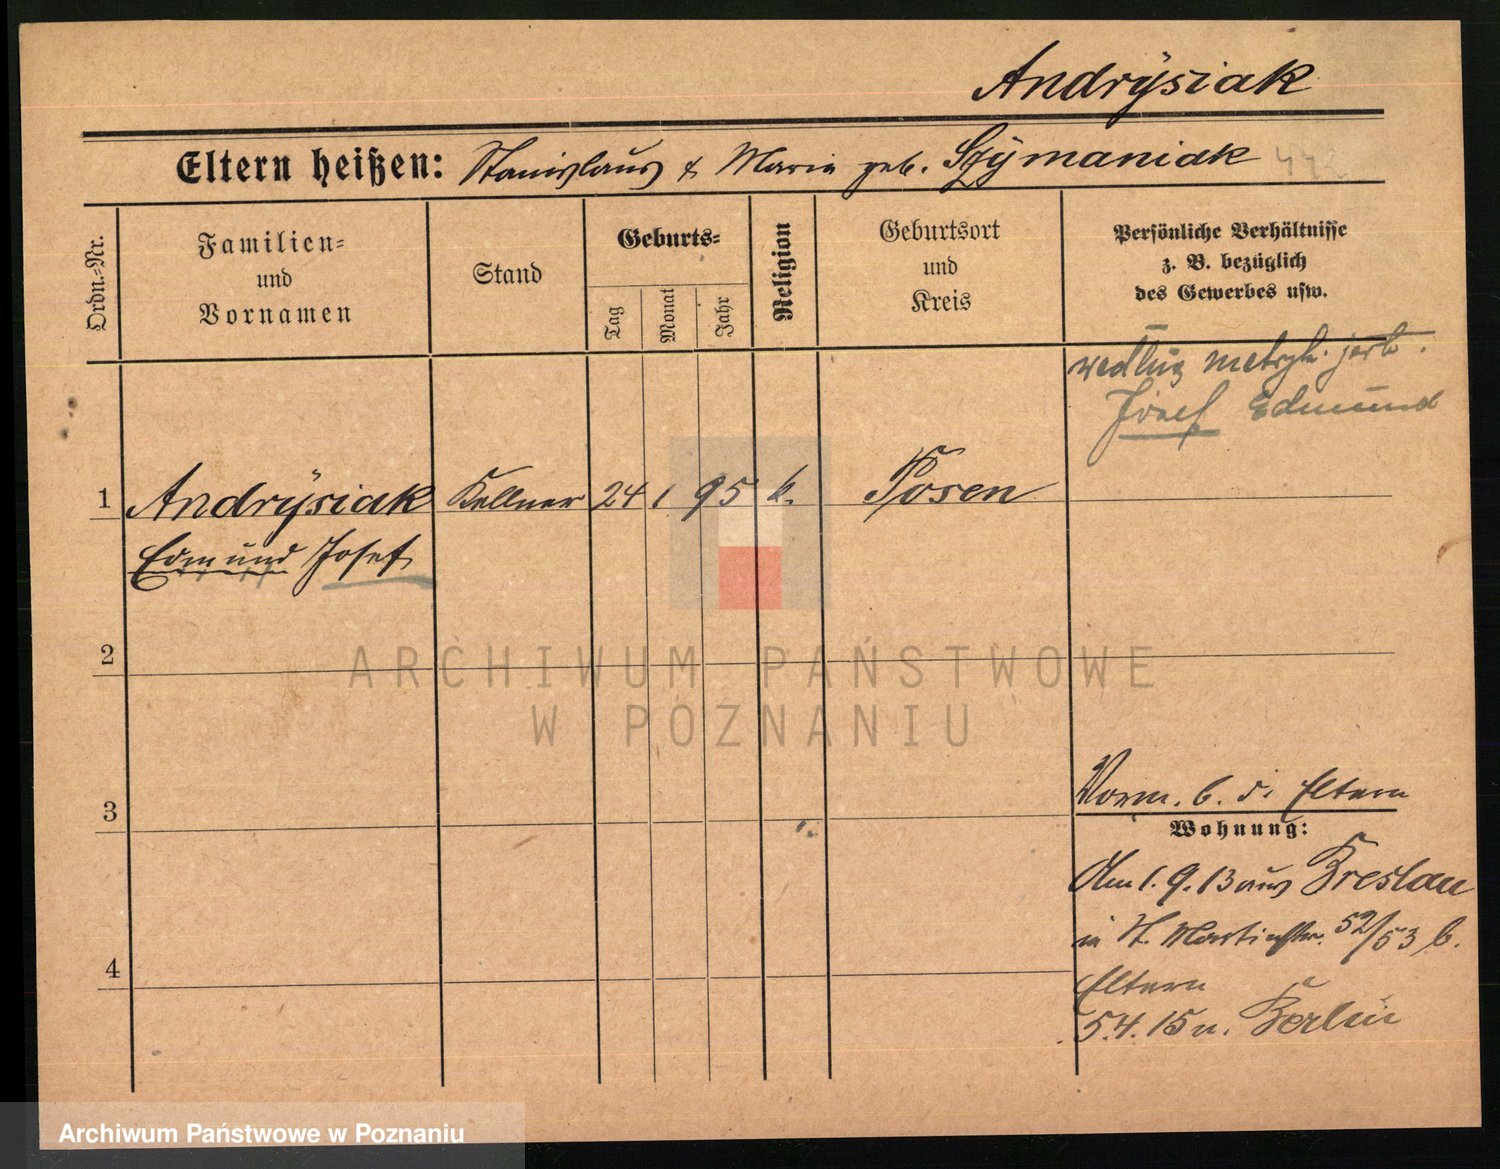 Andrÿsiak
Eltern heißen: Stanislaus & Maria geb. Szÿmaniak 442
Ordn.-Nr.
Familien-
und
Vornamen
Stand
Geburts-
Tag
Monat
Jahr
Religion
Geburtsort
und
Kreis
Persönliche Verhältnisse
z. B. bezüglich
des Gewerbes usw.
według metryk. jest.
Józef Edmund
1 Andrÿsiak Kellner 24 1. 95 k. Posen
Edmund Josef
2
3
4
Vorm. b. d. Eltern
Wohnung:
Am 1. 9. 13 aus Breslau
in St. Martinstr. 52/53 b.
Eltern
5. 4. 15 n. Berlin
ARCHIWUM PAŃSTWOWE
W POZNANIU
Archiwum Państwowe w Poznaniu